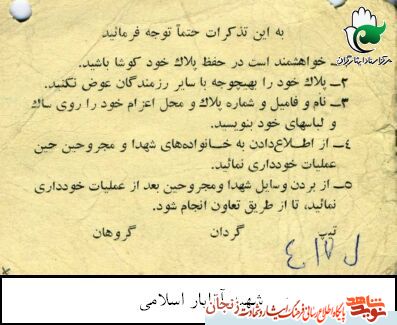 به این تذکرات حتماً توجه فرمائید
مرکز اسناد ایثارگران
۱ــ خواهشمند است در حفظ پلاك خود کوشا باشید.
۲ــ پلاك خود را بهیچوجه با سایر رزمندگان عوض نکنید.
۳ــ نام و فامیل و شماره پلاك و محل اعزام خود را روی ساك
و لباسهای خود بنویسید.
٤ــ از اطلاع‌دادن به خانواده‌های شهدا و مجروحین حین
عملیات خودداری نمائید.
۵ــ از بردن وسایل شهدا ومجروحین بعد از عملیات خودداری
نمائید، تا از طریق تعاون انجام شود.
تیپ گردان گروهان
شهید اسلامی
نوید شاهد
پایگاه اطلاع رسانی فرهنگ ایثار و شهادت زنجان